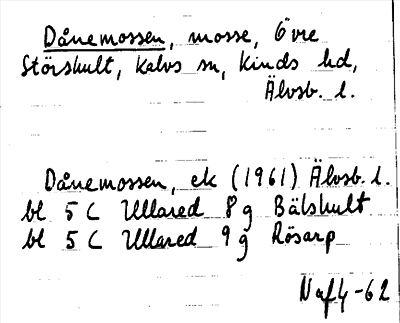 Dånemossen, mosse, Övre
Störshult, Kalvs sn, Kinds hd,
Älvsb. l.
Dånemossen, ek (1961) Älvsb. l.
bl 5 C Ullared 8 g Bälshult
bl 5 C Ullared 9 g Rösarp
Naf4-62